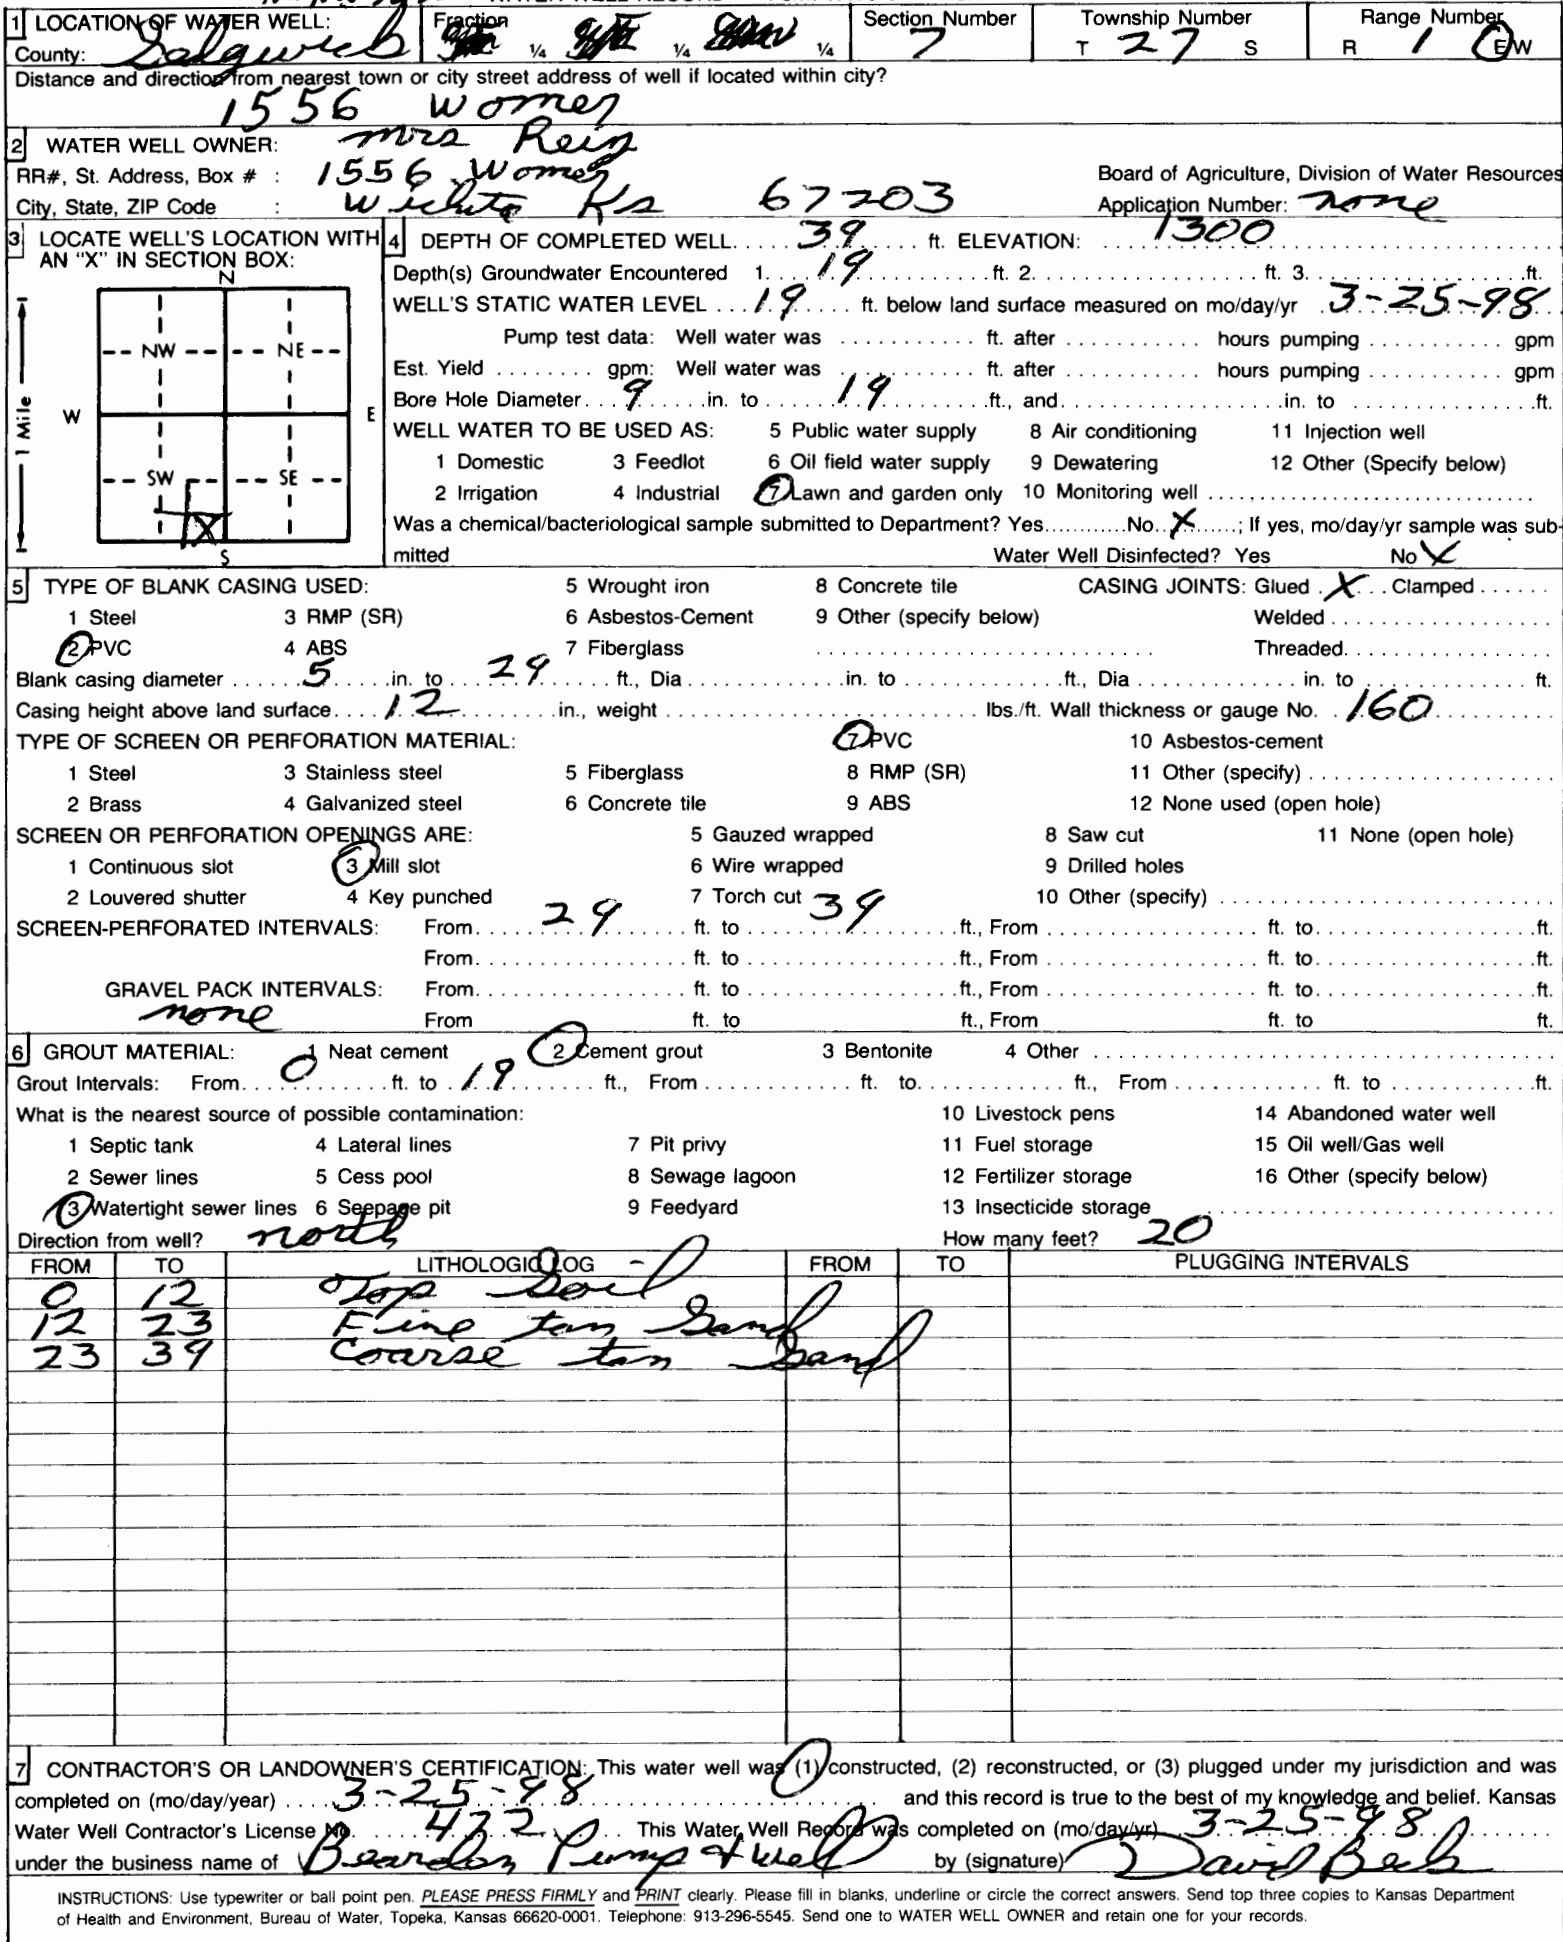 1 LOCATION OF WATER WELL: Fraction Section Number Township Number Range Number
County: Sedgwick ¼ ¼ ¼ 7 T 27 S R 1 E W
Distance and direction from nearest town or city street address of well if located within city?
1556 Womer
2 WATER WELL OWNER: Mrs Rein
RR#, St. Address, Box # : 1556 Womer Board of Agriculture, Division of Water Resources
City, State, ZIP Code : Wichita Ks 67203 Application Number: none
3 LOCATE WELL'S LOCATION WITH AN "X" IN SECTION BOX:
N
NW NE
W E
SW SE
X
S
1 Mile
4 DEPTH OF COMPLETED WELL 39 ft. ELEVATION: 1300
Depth(s) Groundwater Encountered 1. 19 ft. 2. ft. 3. ft.
WELL'S STATIC WATER LEVEL 19 ft. below land surface measured on mo/day/yr 3-25-98
Pump test data: Well water was ft. after hours pumping gpm
Est. Yield gpm: Well water was ft. after hours pumping gpm
Bore Hole Diameter 9 in. to 19 ft., and in. to ft.
WELL WATER TO BE USED AS: 5 Public water supply 8 Air conditioning 11 Injection well
1 Domestic 3 Feedlot 6 Oil field water supply 9 Dewatering 12 Other (Specify below)
2 Irrigation 4 Industrial 7 Lawn and garden only 10 Monitoring well
Was a chemical/bacteriological sample submitted to Department? Yes No X ; If yes, mo/day/yr sample was sub-
mitted Water Well Disinfected? Yes No X
5 TYPE OF BLANK CASING USED: 5 Wrought iron 8 Concrete tile CASING JOINTS: Glued X Clamped
1 Steel 3 RMP (SR) 6 Asbestos-Cement 9 Other (specify below) Welded
2 PVC 4 ABS 7 Fiberglass Threaded
Blank casing diameter 5 in. to 29 ft., Dia in. to ft., Dia in. to ft.
Casing height above land surface 12 in., weight lbs./ft. Wall thickness or gauge No. 160
TYPE OF SCREEN OR PERFORATION MATERIAL: 7 PVC 10 Asbestos-cement
1 Steel 3 Stainless steel 5 Fiberglass 8 RMP (SR) 11 Other (specify)
2 Brass 4 Galvanized steel 6 Concrete tile 9 ABS 12 None used (open hole)
SCREEN OR PERFORATION OPENINGS ARE: 5 Gauzed wrapped 8 Saw cut 11 None (open hole)
1 Continuous slot 3 Mill slot 6 Wire wrapped 9 Drilled holes
2 Louvered shutter 4 Key punched 7 Torch cut 10 Other (specify)
SCREEN-PERFORATED INTERVALS: From 29 ft. to 39 ft., From ft. to ft.
From ft. to ft., From ft. to ft.
GRAVEL PACK INTERVALS: From ft. to ft., From ft. to ft.
none From ft. to ft., From ft. to ft.
6 GROUT MATERIAL: 1 Neat cement 2 Cement grout 3 Bentonite 4 Other
Grout Intervals: From 0 ft. to 19 ft., From ft. to ft., From ft. to ft.
What is the nearest source of possible contamination: 10 Livestock pens 14 Abandoned water well
1 Septic tank 4 Lateral lines 7 Pit privy 11 Fuel storage 15 Oil well/Gas well
2 Sewer lines 5 Cess pool 8 Sewage lagoon 12 Fertilizer storage 16 Other (specify below)
3 Watertight sewer lines 6 Seepage pit 9 Feedyard 13 Insecticide storage
Direction from well? north How many feet? 20
FROM TO LITHOLOGIC LOG FROM TO PLUGGING INTERVALS
0 12 Top Soil
12 23 Fine tan Sand
23 39 Coarse tan Sand
7 CONTRACTOR'S OR LANDOWNER'S CERTIFICATION: This water well was (1) constructed, (2) reconstructed, or (3) plugged under my jurisdiction and was
completed on (mo/day/year) 3-25-98 and this record is true to the best of my knowledge and belief. Kansas
Water Well Contractor's License No. 472 This Water Well Record was completed on (mo/day/yr) 3-25-98
under the business name of Bearden Pump & Well by (signature) David Beck
INSTRUCTIONS: Use typewriter or ball point pen. PLEASE PRESS FIRMLY and PRINT clearly. Please fill in blanks, underline or circle the correct answers. Send top three copies to Kansas Department
of Health and Environment, Bureau of Water, Topeka, Kansas 66620-0001. Telephone: 913-296-5545. Send one to WATER WELL OWNER and retain one for your records.